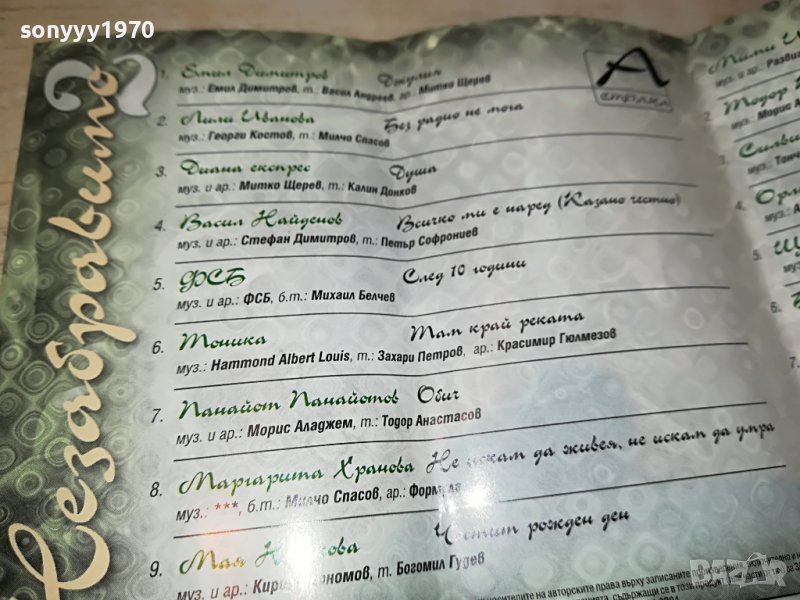 sonyyy1970
Незабравимо
2
А
страна
1. Емил Димитров Джулия
муз.: Емил Димитров, т.: Васил Андреев, ар.: Митко Щерев
2. Лили Иванова Без радио не мога
муз.: Георги Костов, т.: Милчо Спасов
3. Диана експрес Душа
муз. и ар.: Митко Щерев, т.: Калин Донков
4. Васил Найденов Всичко ми е наред (Казано честно)
муз. и ар.: Стефан Димитров, т.: Петър Софрониев
5. ФСБ След 10 години
муз. и ар.: ФСБ, б.т.: Михаил Белчев
6. Тоника Там край реката
муз.: Hammond Albert Louis, т.: Захари Петров, ар.: Красимир Гюлмезов
7. Панайот Панайотов Обич
муз. и ар.: Морис Аладжем, т.: Тодор Анастасов
8. Маргарита Хранова Не искам да живея, не искам да умра
муз.: ***, б.т.: Милчо Спасов, ар.: Формула
9. Мая Честит рожден ден
муз. и ар.: т. Богомил Гудев
Мими
муз. и ар.:
2. Тодор
Морис
3. Силви
муз.:
4. Орл
5. Щ
6.
7.
носителите на авторските права върху записаните
съдържащи се в този